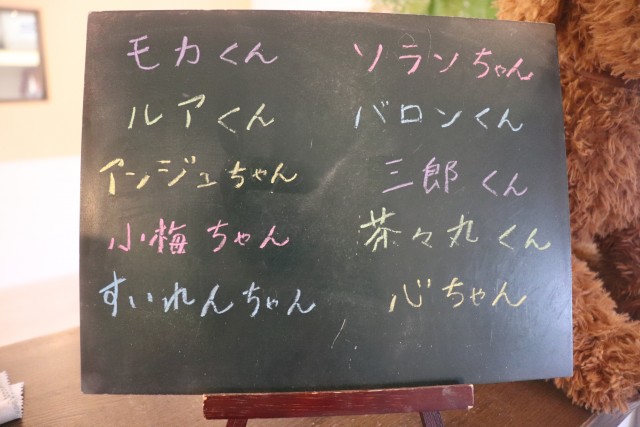 モカくん
ルアくん
アンジュちゃん
小梅ちゃん
すいれんちゃん
ソランちゃん
バロンくん
三郎くん
茶々丸くん
心ちゃん